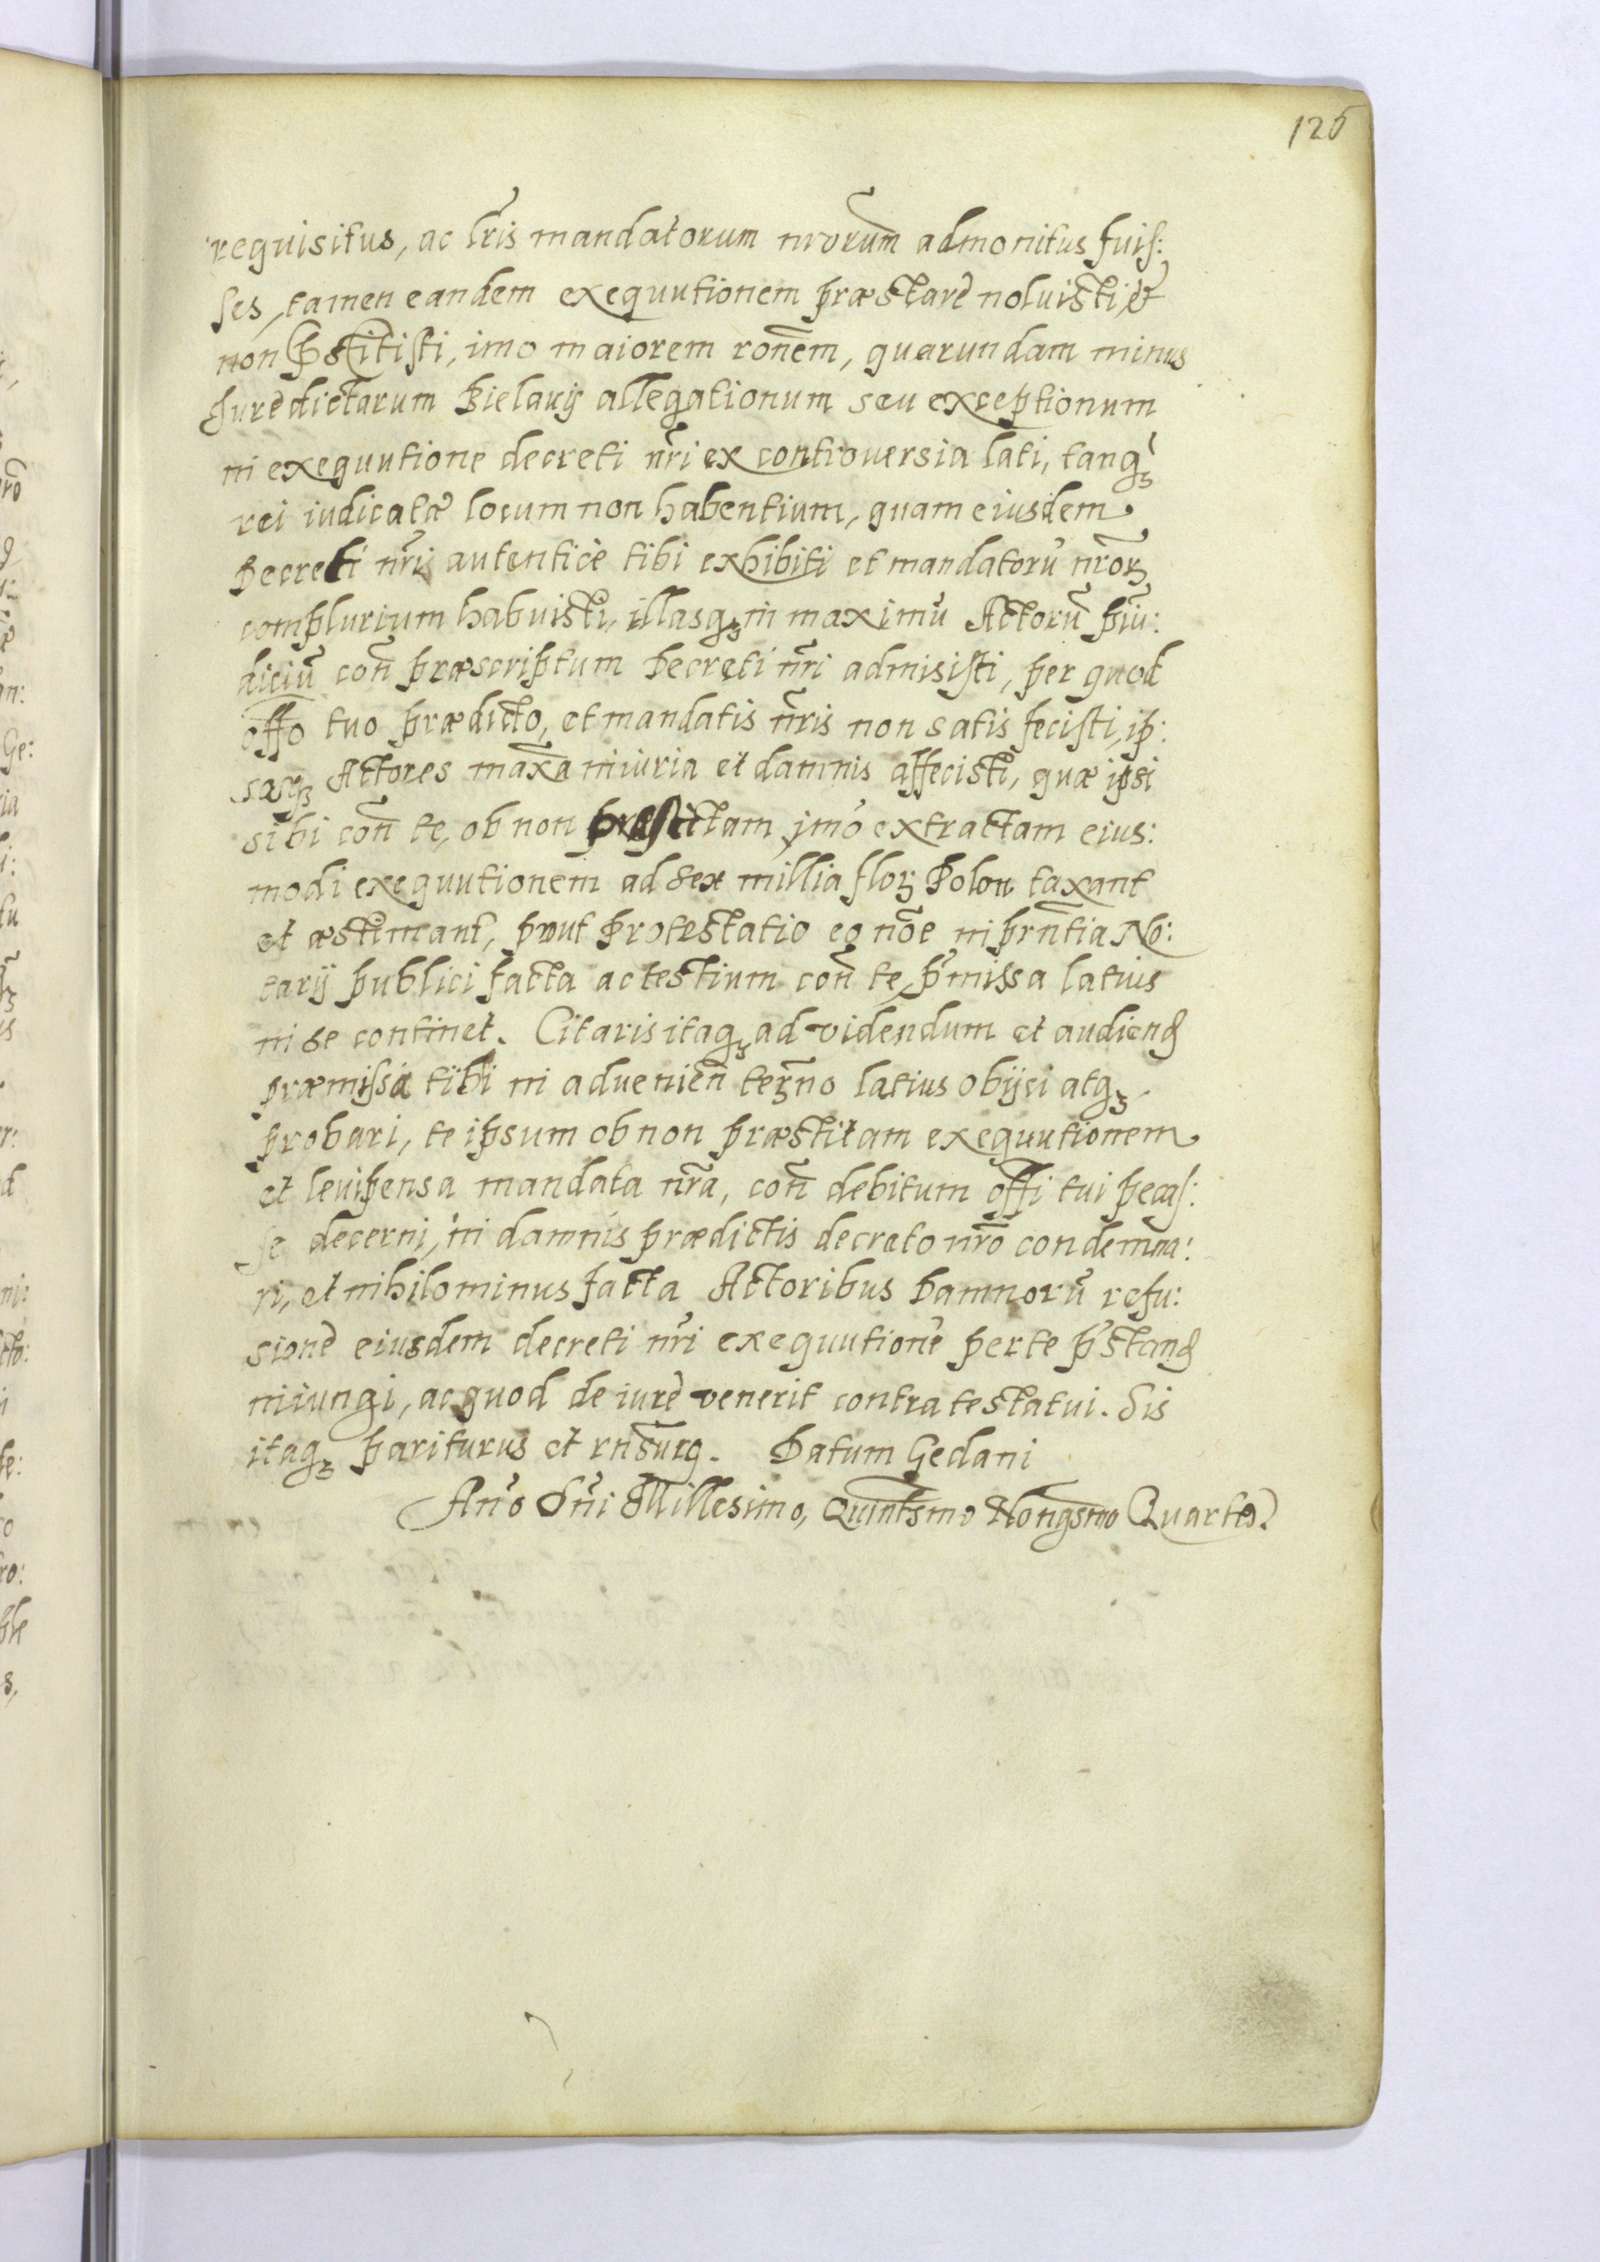 125
requisitus, ac lr̃is mandatorum nr̃orum admonitus fuis:
ses, tamen eandem exequutionem præstare noluisti, et
non p̃stitisti, imo maiorem ronẽm, quarundam minus
iure dictarum Bielavij allegationum seu exceptionum
in exequutione decreti nr̃i ex controversia lati, tanqȝ
rei iudicatæ locum non habentium, quam eiusdem
Decreti nr̃i autentice tibi exhibiti et mandatorũ nr̃orȝ
complurium habuisti, illasqȝ in maximũ Actorũ p̃iu:
diciũ coñ præscriptum Decreti nr̃i admisisti, per quod
offo tuo prædicto, et mandatis nr̃is non satisfecisti, ip:
sosqȝ Actores maxã iniuria et damnis affecisti, quæ ipsi
sibi coñ te, ob non præstitam imo extractam eius:
modi exequutionem ad sex millia florȝ Polon taxant
et æstimant, prout Protestatio eo nõe in prñtia No:
tarij publici facta ac testium coñ te p̃missa latius
in se continet. Citaris itaqȝ ad videndum et audiend
præmissa tibi in advenieñ terno latius obijci atqȝ
probari, te ipsum ob non præstitam exequutionem
et levipensa mandata nr̃a, coñ debitum offi tui pecas:
se decerni, in damnis prædictis decreto nr̃o condemna:
ri, et nihilominus facta Actoribus Damnorũ refu:
sione eiusdem decreti nr̃i exequutione per te p̃stand
iniungi, ac quod de iure venerit contra te statui. Sis
itaqȝ pariturus et rñsurq. Datum Gedani
Anño Dñi Millesimo, Quintsmo Nongsmo Quarto.